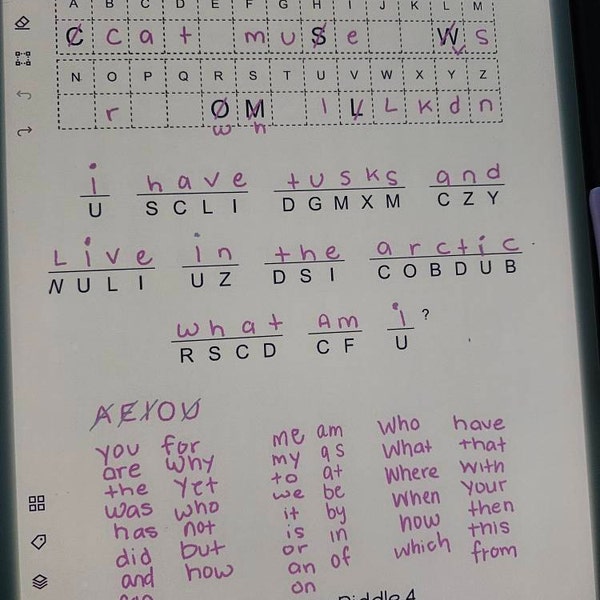 A B C D E F G H I J K L M
C c a t m u S e W s
v
N O P Q R S T U V W X Y Z
r O M i L L k d n
w h
i have tusks and
U S C L I D G M X M C Z Y
Live in the arctic
N U L I U Z D S I C O B D U B
what Am i ?
R S C D C F U
A E I O U
you for me am who have
are why my as what that
the yet to at where with
was who we be when your
has not it by how then
did but is in which this
and how or of from
an
on
Riddle 4